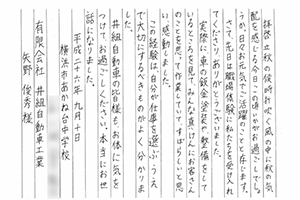 拝啓 立秋の候時折吹く風の中に秋の気
配を感じる今日この頃いかがお過ごしでしょ
うか。日々お元気でご活躍のことと存じます。
さて、先日は職場体験に私たちを受け入れ
てくださりありがとうございました。
実際に車の鈑金塗装や整備をして
いるところを見て、みんな真けんにお客さん
のことを思って作業していて、すばらしいと思
い、感動しました。
この経験は、自分が仕事を選ぶうえ
で大切にするべきものがよく分かりま
した。
井組自動車の皆様もお体に気を
つけて、お過ごしください。本当にお世
話になりました。
平成二十六年九月十日
横浜市あかね台中学校
有限会社 井組自動車工業
矢野 俊秀様